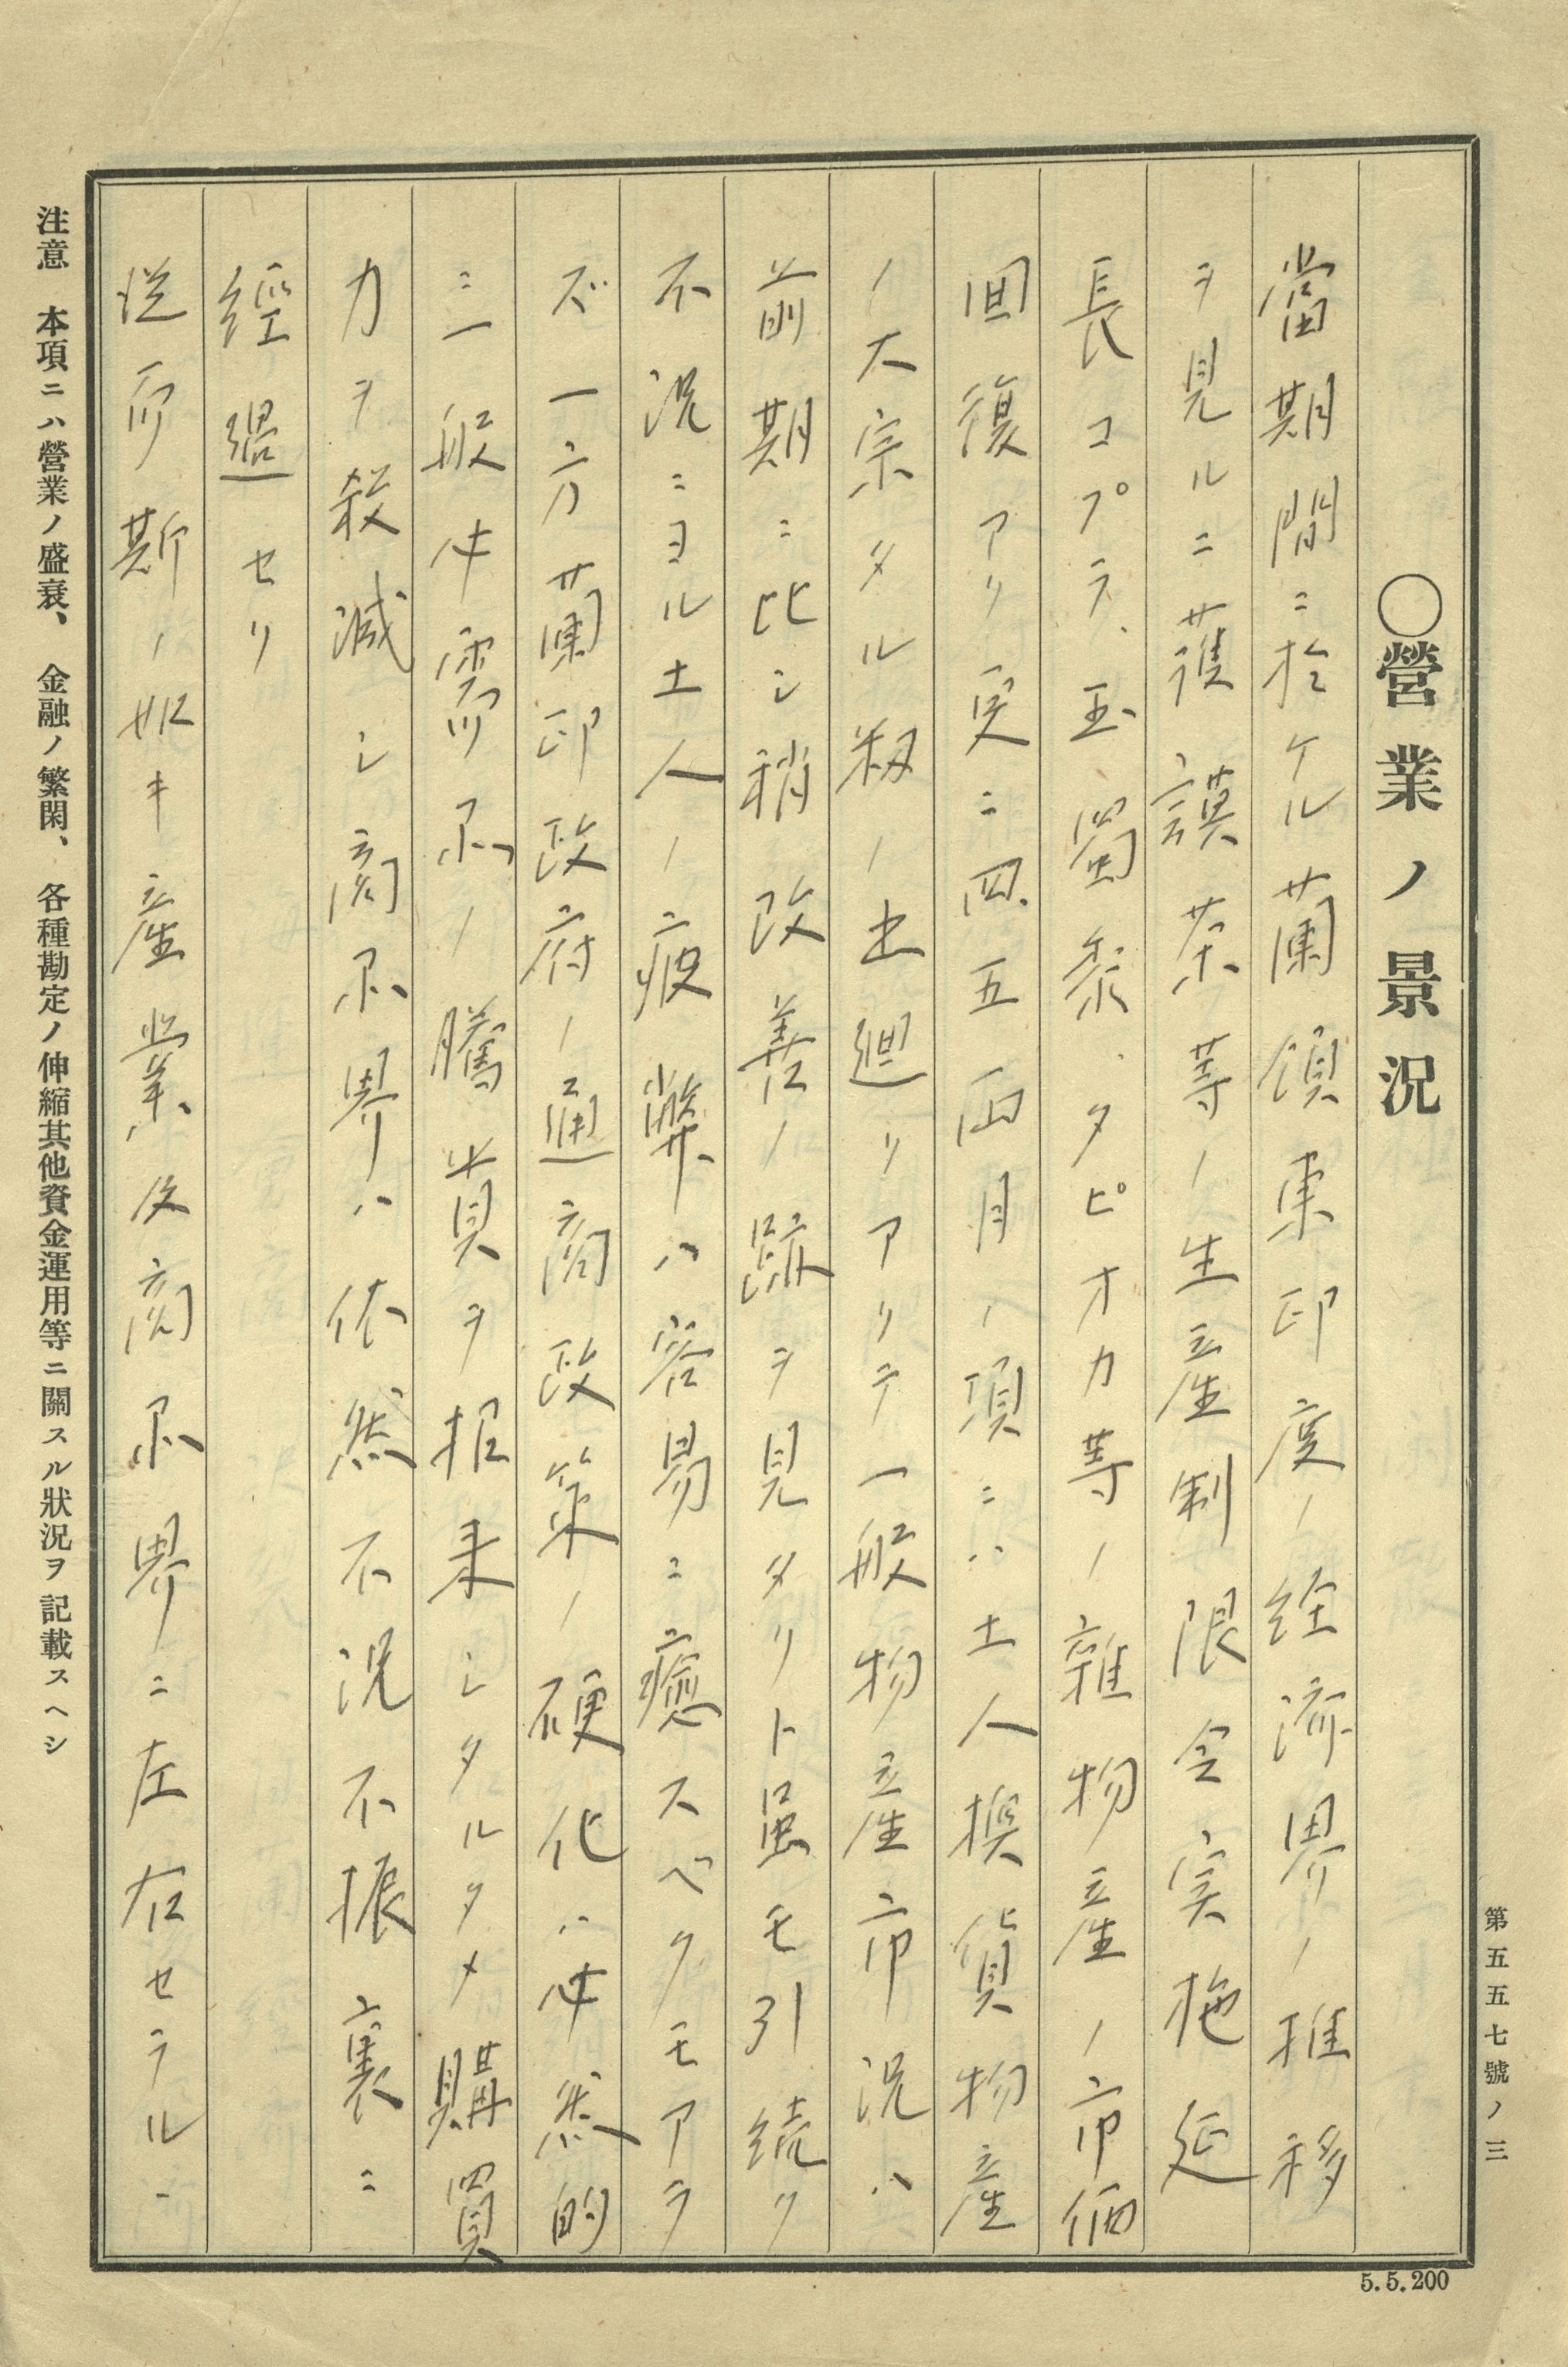 第五五七號ノ三
○營業ノ景況
當期間ニ於ケル蘭領東印度ノ経済界ノ推移
ヲ見ルニ護謨茶等ノ生産制限令実施延
長コプラ、玉蜀黍、タピオカ等ノ雑物産ノ市価
回復アリ更ニ四、五両月ノ項ニハ土人換貨物産
ノ大宗タル籾ノ出廻リアリテ一般物産市況ハ
前期ニ比シ稍改善ノ跡ヲ見タリト虽モ引続ク
不況ニヨル土人ノ疲弊ハ容易ニ癒スベクモアラ
ズ一方蘭印政府ノ通商政策ノ硬化ハ必然的
ニ一般必需品ノ騰貴ヲ招来シタルタメ購買
力ヲ殺減シ商品界ハ依然不況不振裏ニ
經過セリ
従而斯ノ如キ産業及商品界ニ左右セラルヽ
注意 本項ニハ營業ノ盛衰、金融ノ繁閑、各種勘定ノ伸縮其他資金運用等ニ關スル狀況ヲ記載スヘシ
5.5.200